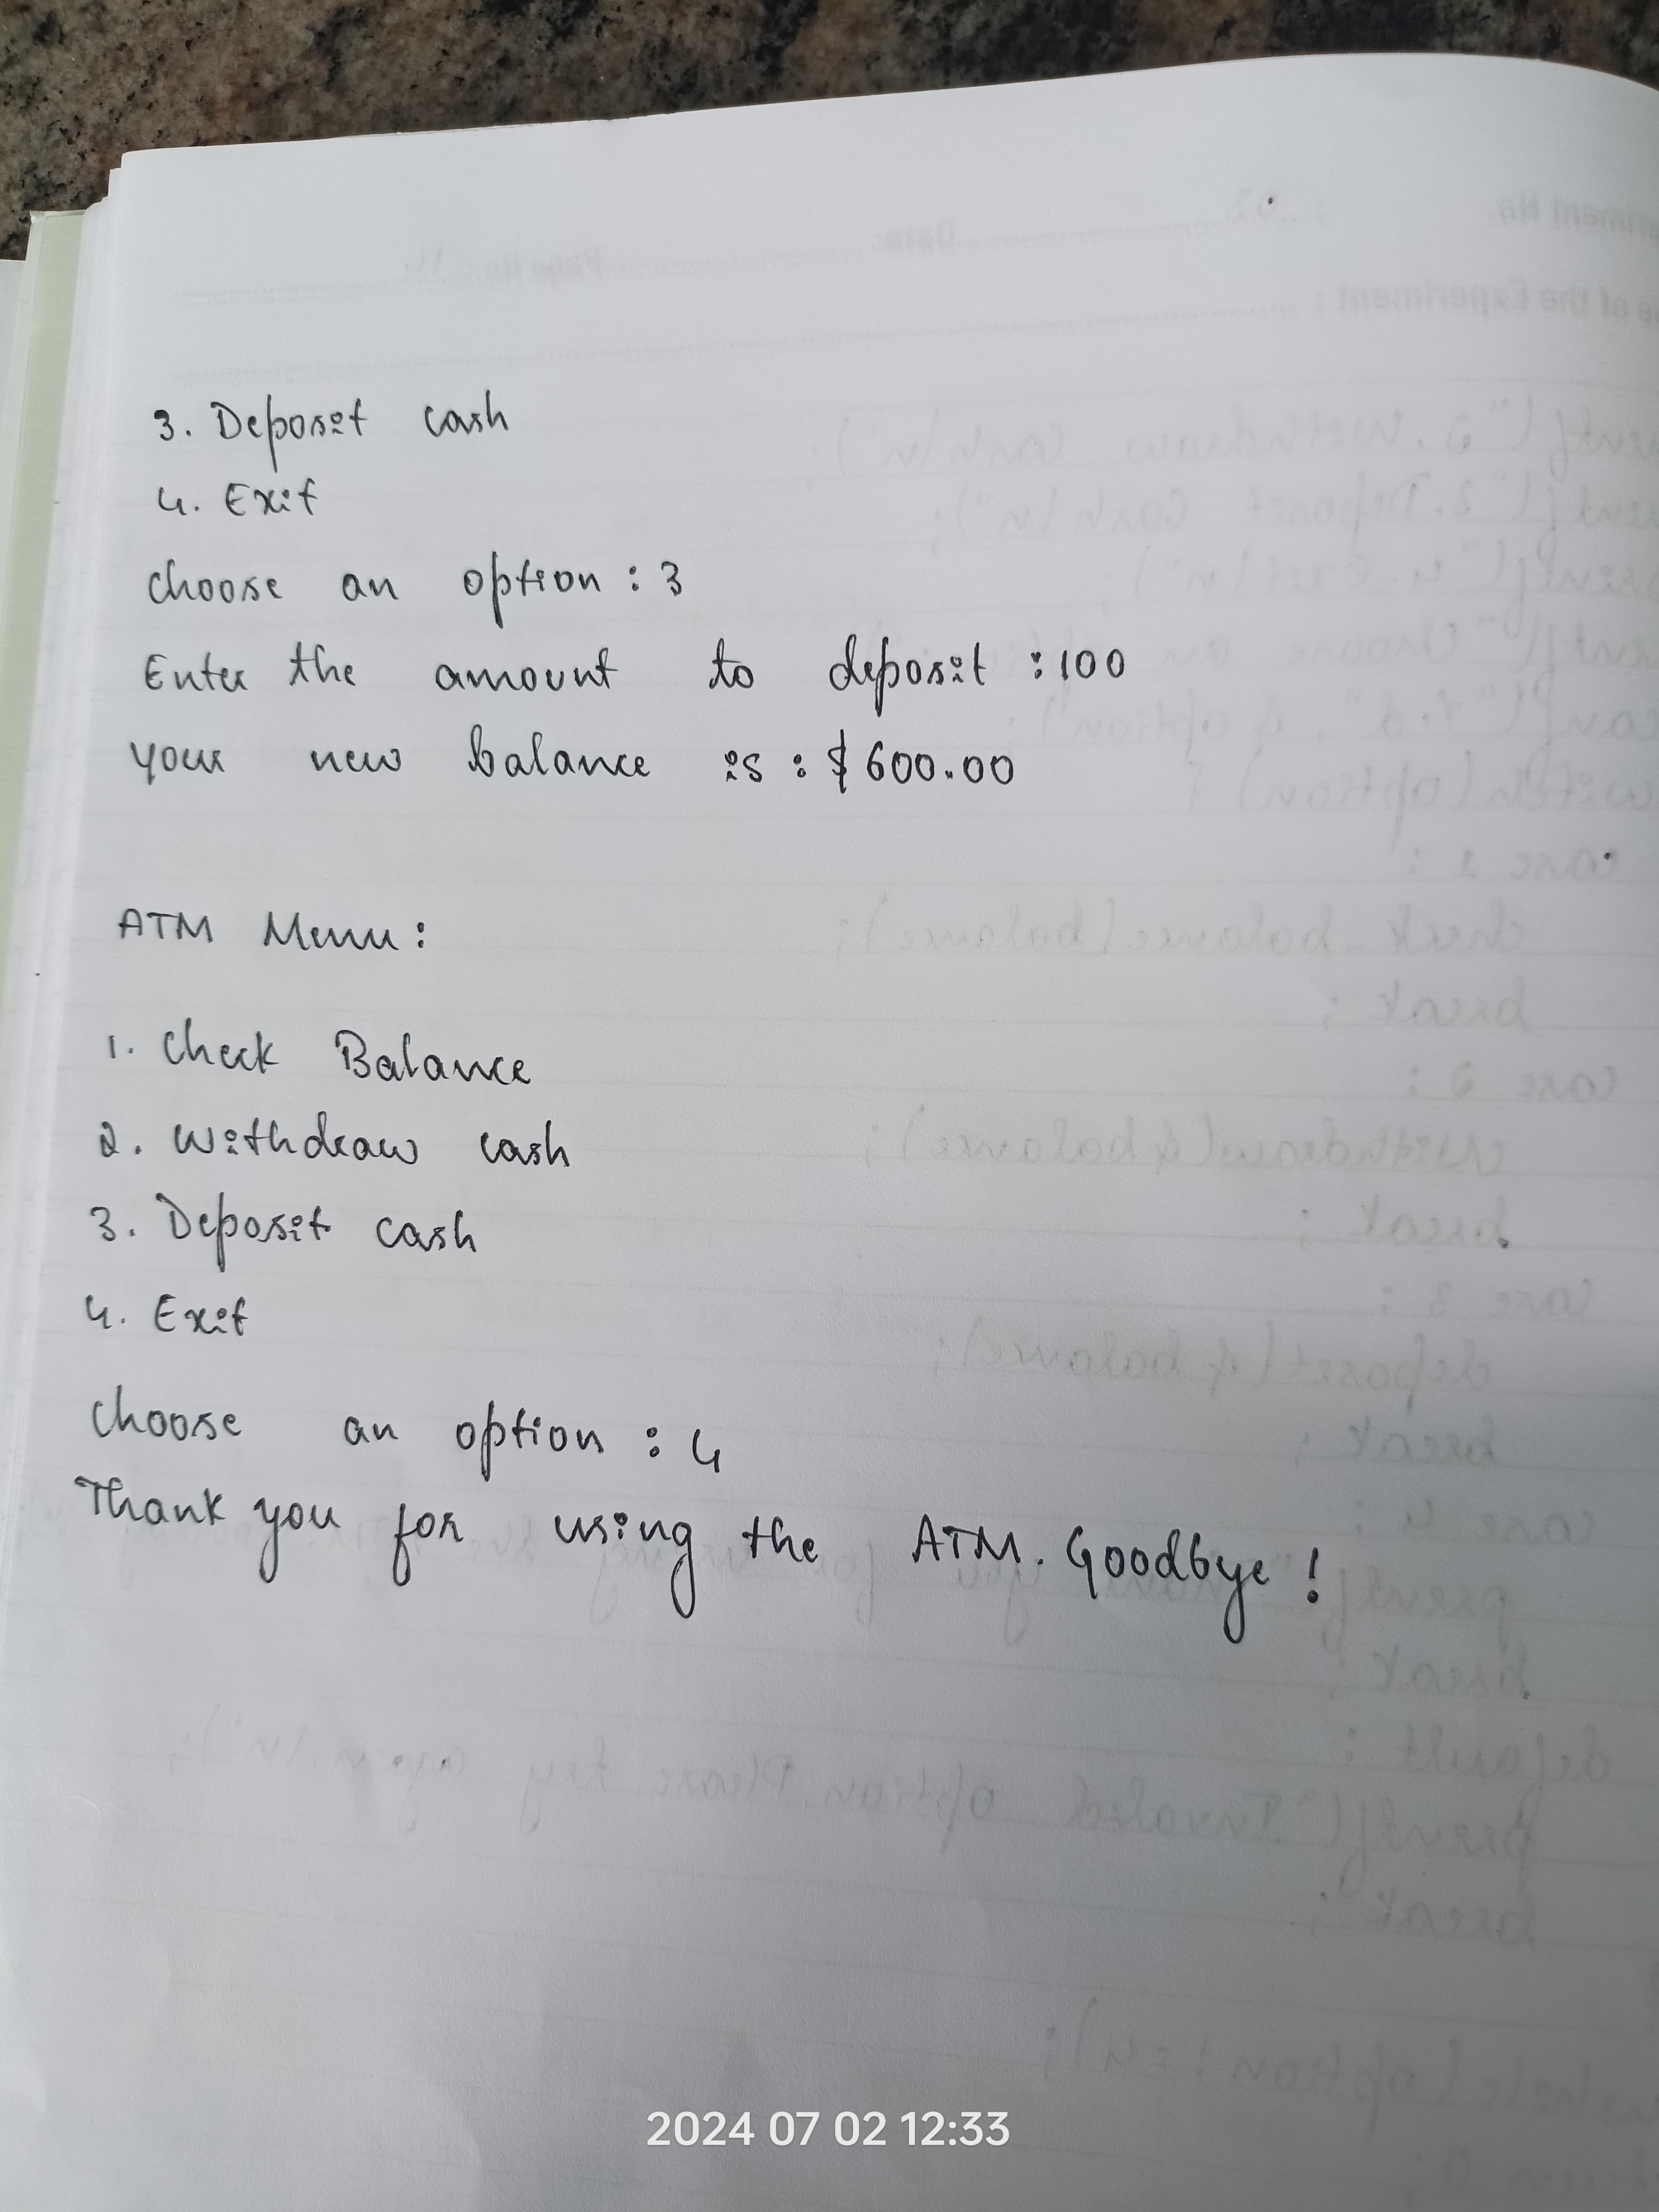 3. Deposit cash
4. Exit
choose an option : 3
Enter the amount to deposit : 100
your new balance is : $ 600.00
ATM Menu :
1. Check Balance
2. Withdraw cash
3. Deposit cash
4. Exit
choose an option : 4
Thank you for using the ATM. Goodbye !
2024 07 02 12:33